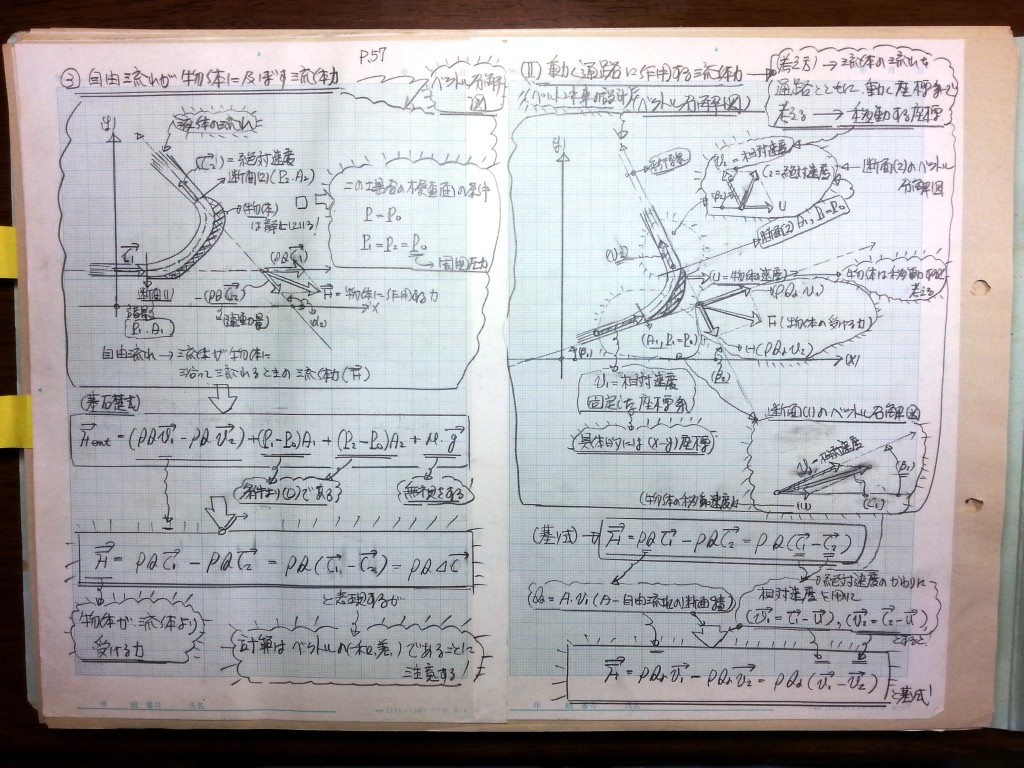 P.57
③ 自由流れが物体に及ぼす流体力
ベクトル分解図
y
液体の流れ
(C₂)=絶対速度
断面(2) (P₂.A₂)
(物体)
は静止している!
この場合の検査面の条件
P=P₀
P₁=P₂=P₀
周囲圧力
C₁
断面(1)
P₁.A₁
(ρQC₁)
-(ρQC₂)
F=物体に作用する力
(運動量)
α₂
x
自由流れ→流体が物体に
沿って流れるときの流体力(F)
(基礎式)
Fext = (ρQv₁-ρQv₂)+(P₁-P₀)A₁+(P₂-P₀)A₂+M.g
条件より(0)である
無視をする
F = ρQC₁ - ρQC₂ = ρQ(C₁-C₂) = ρQΔC
と表現するが
物体が流体より
受ける力
計算はベクトルの(和,差)であることに
注意する!
(Ⅱ) 動く通路に作用する流体力
(ペルトン水車の設計)
(ベクトル分解図)
(考え方)→流体の流れを
通路とともに動く座標系で
考える→移動する座標
y
v₂=相対速度
C₂=絶対速度
U
断面(2)のベクトル
分解図
断面(2) A₁,P₁=P₀
(v₂)
(U=物体の速度)
物体は移動
考える
(ρQr v₁)
F(物体の受ける力)
(-)(ρQr v₂)
(A₁,P₁=P₀)
(β₁)
(β₂)
(x)
v₁=相対速度
固定した座標系
具体的には(x-y)座標
断面(1)のベクトル分解図
v₁=相対速度
(β₁)
(U)
(C₁)
(物体の移動速度)は
(基り式)→ F = ρQC₁ - ρQC₂ = ρQ(C₁-C₂)
Qr = A.v₁(A-自由流れの断面積)
絶対速度のかわりに
相対速度を用いて
(v₁=C₁-U),(v₂=C₂-U)
とすると、
F = ρQr v₁ - ρQr v₂ = ρQr(v₁-v₂)
と基式!